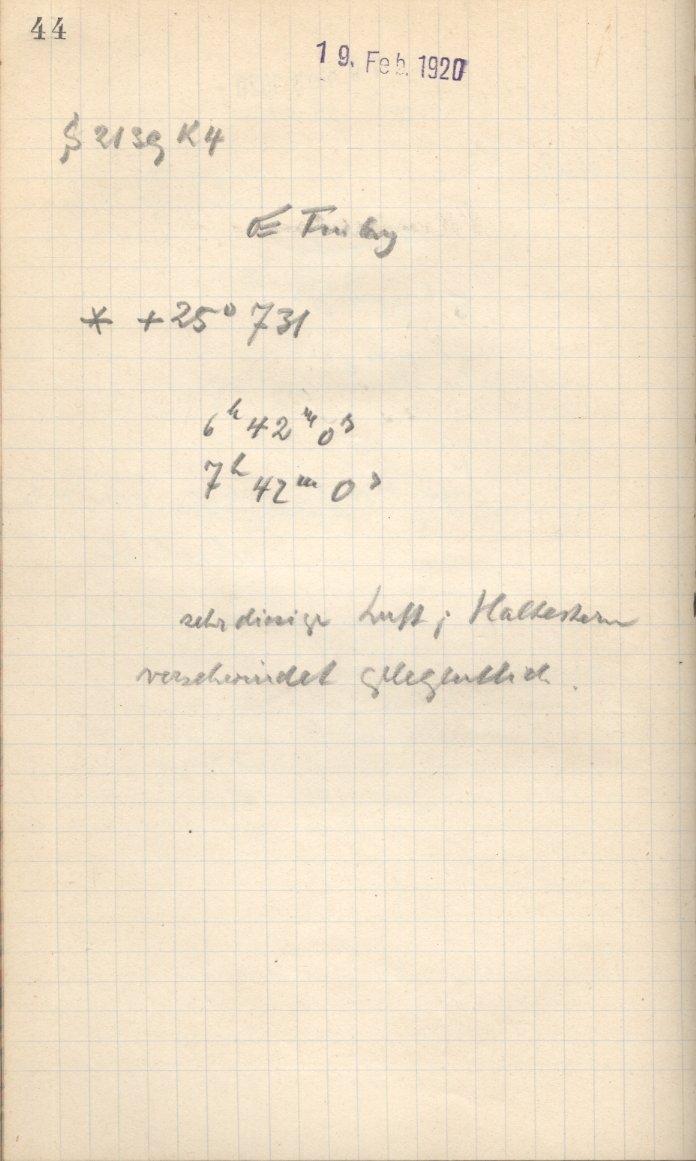 44
19. Feb. 1920
§ 213g K4
E
* +25° 731
6ʰ 42ᵐ 0ˢ
7ʰ 42ᵐ 0ˢ
sehr diesige Luft; Haltestern
verschwindet gelegentlich.